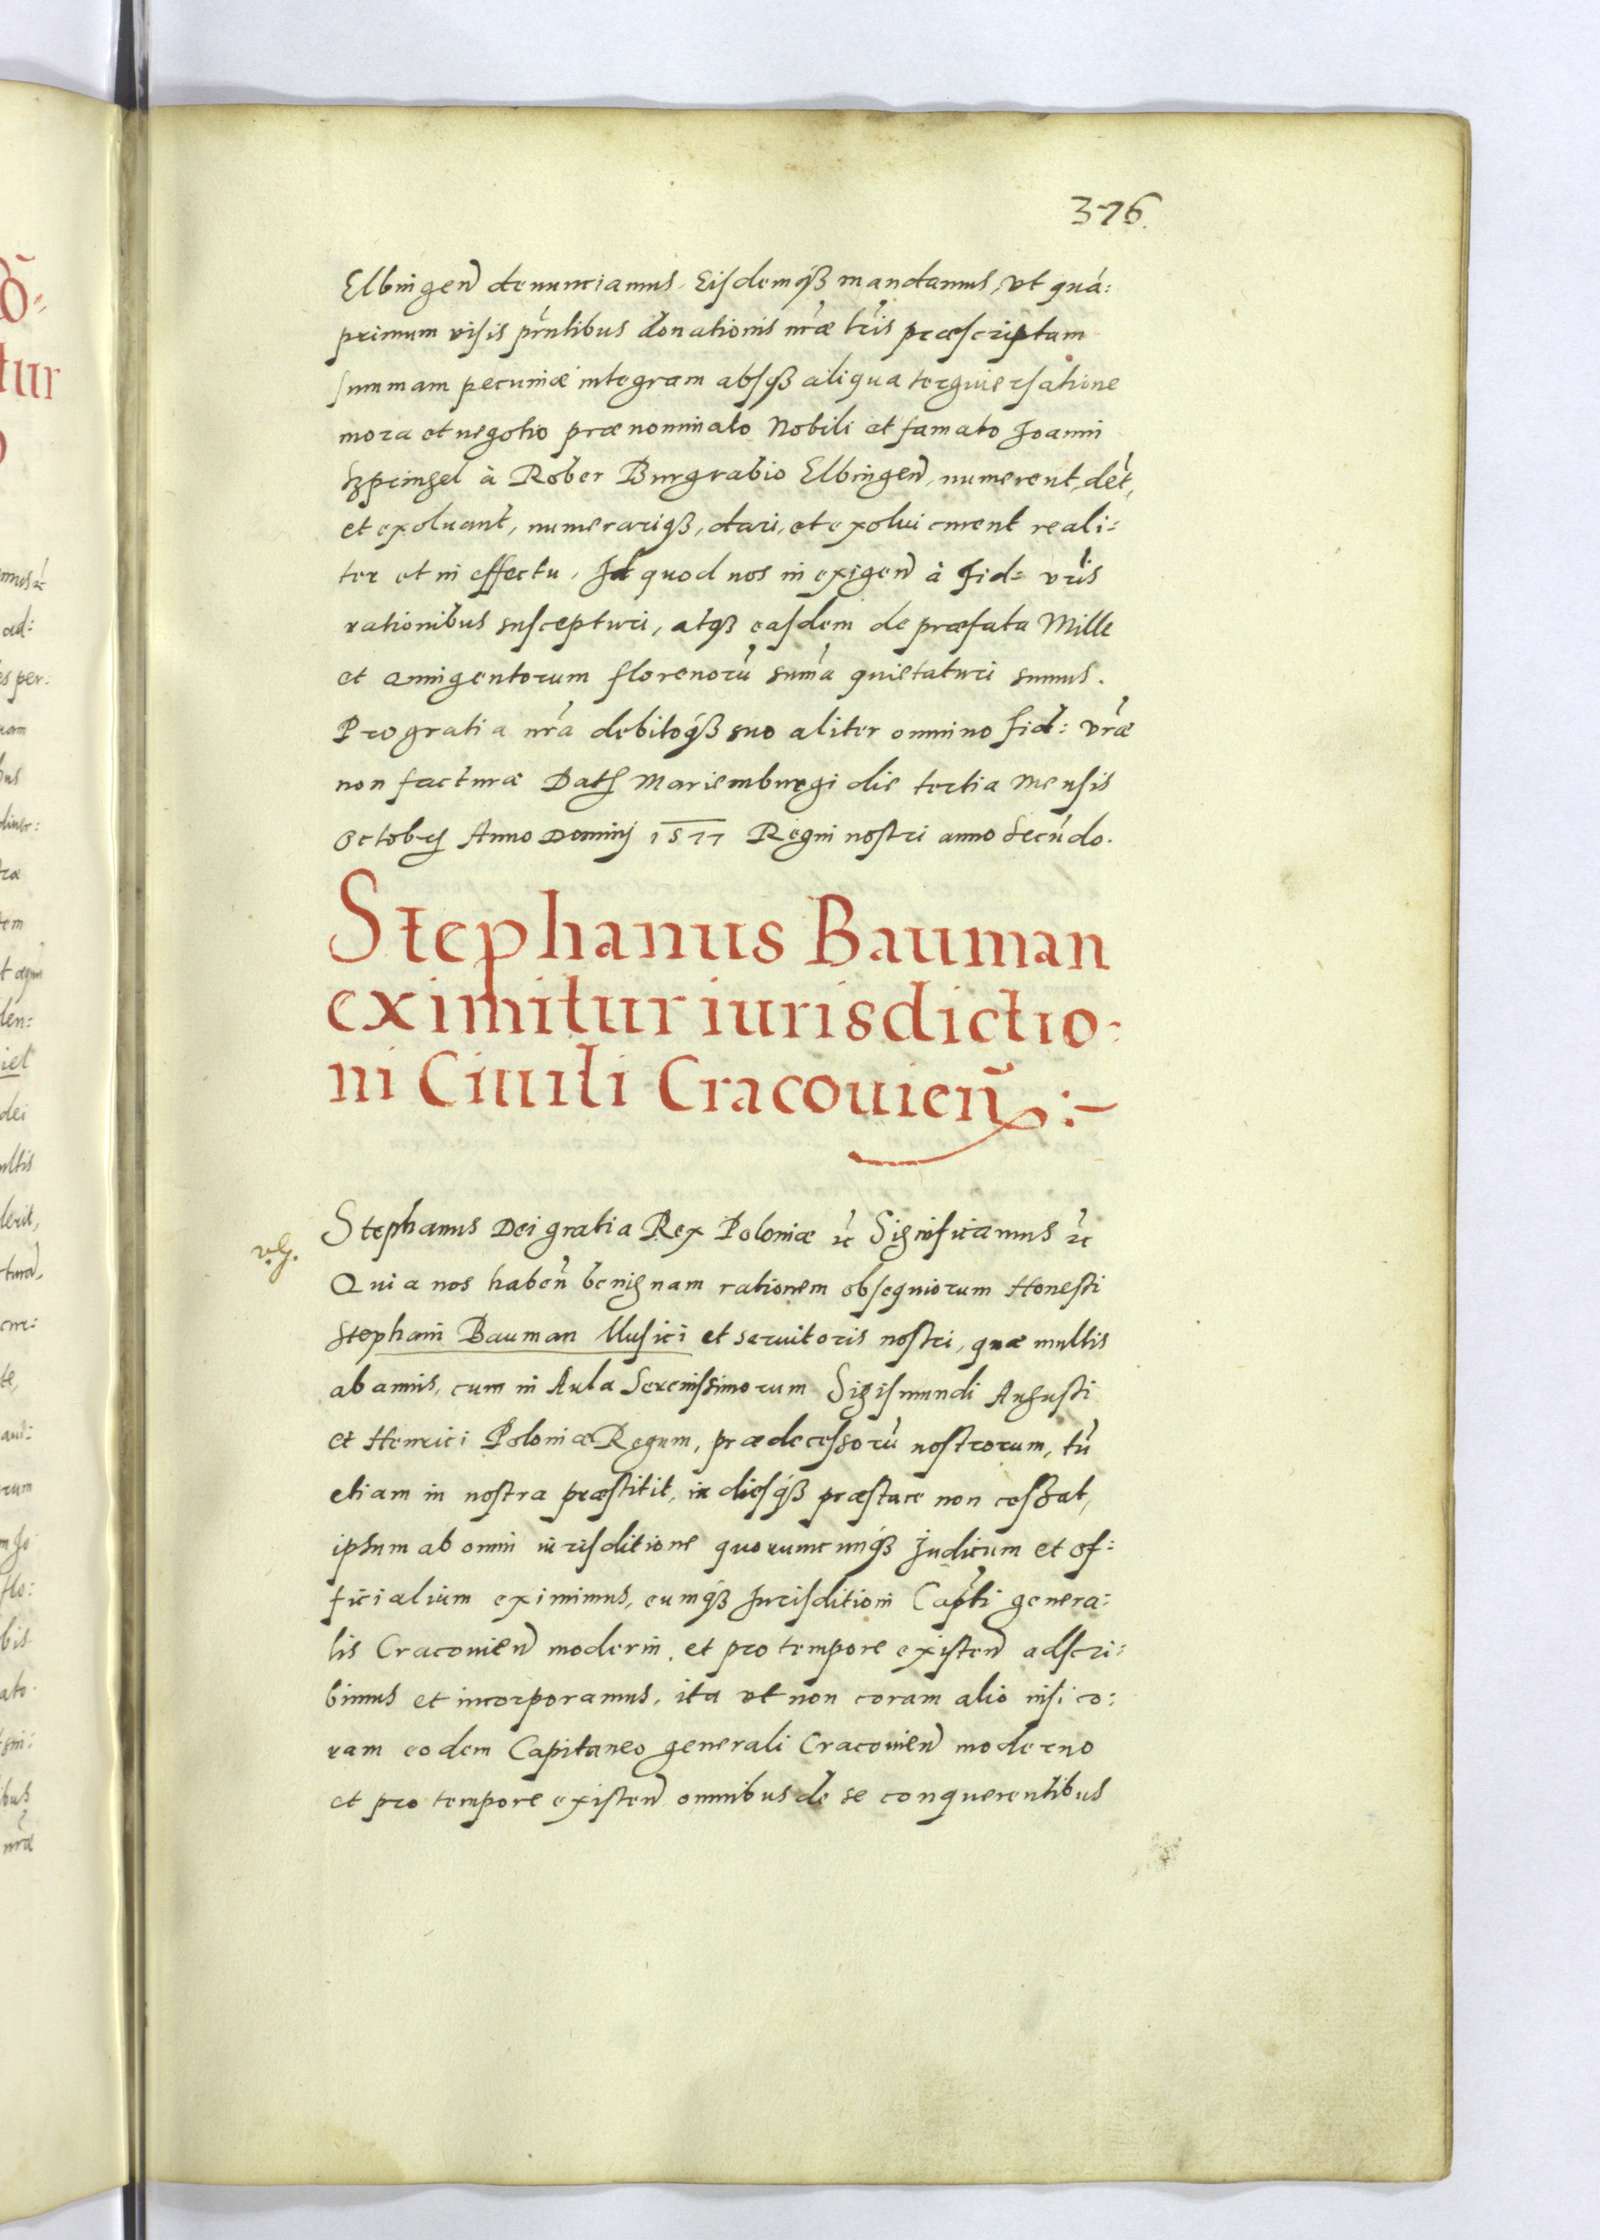 376.
Elbingeñ denunciamus. Eisdemqꝫ mandamus, vt quá:
primum visis pr̃ntibus donationis nr̃æ lr̃is præscriptam
summam pecuniæ integram absqꝫ aliqua terguiersatione
mora et negotio prænominato Nobili et famato Joanni
Szpeingel à Rober Burgrabio Elbingeñ, numerent, dẽt,
et exoluant, numerariqꝫ, dari, et exolui curent reali:
ter et in effectu. Id quod nos in exigeñ à Fid: vr̃is
rationibus suscepturi, atqꝫ easdem de præfata Mille
et Quingentorum florenorũ summ̃a quietaturi sumus.
Pro gratia nr̃a debitoqꝫ suo aliter omnino fid: vr̃æ
non facturæ Datꝭ Mariemburgi die tertia Mensis
Octobrꝭ Anno Dominj 1577 Regni nostri anno Secũdo.
Stephanus Bauman
eximitur iurisdictio:
ni Ciuili Cracouieñ :-
Stephanus Dei gratia Rex Poloniæ ꝛc̃ Significamus ꝛc̃
Quia nos habeñ benignam rationem obsequiorum Honesti
Stephani Bauman Musici et seruitoris nostri, quæ multis
ab annis, cum in Aula Serenissimorum Sigismundi Augusti
et Henrici Poloniæ Regum, prædecessorũ nostrorum, tũ
etiam in nostra præstitit, in diesqꝫ præstare non cessat,
ipsum ab omni iurisditione quorumcunqꝫ Judicum et of:
ficialium eximimus, eumqꝫ Jurisditioni Cap̃ti genera:
lis Cracouieñ moderni, et pro tempore existeñ adscri:
bimus et incorporamus, ita vt non coram alio nisi co:
ram eodem Capitaneo generali Cracouieñ moderno
et pro tempore existeñ omnibus de se conquerentibus